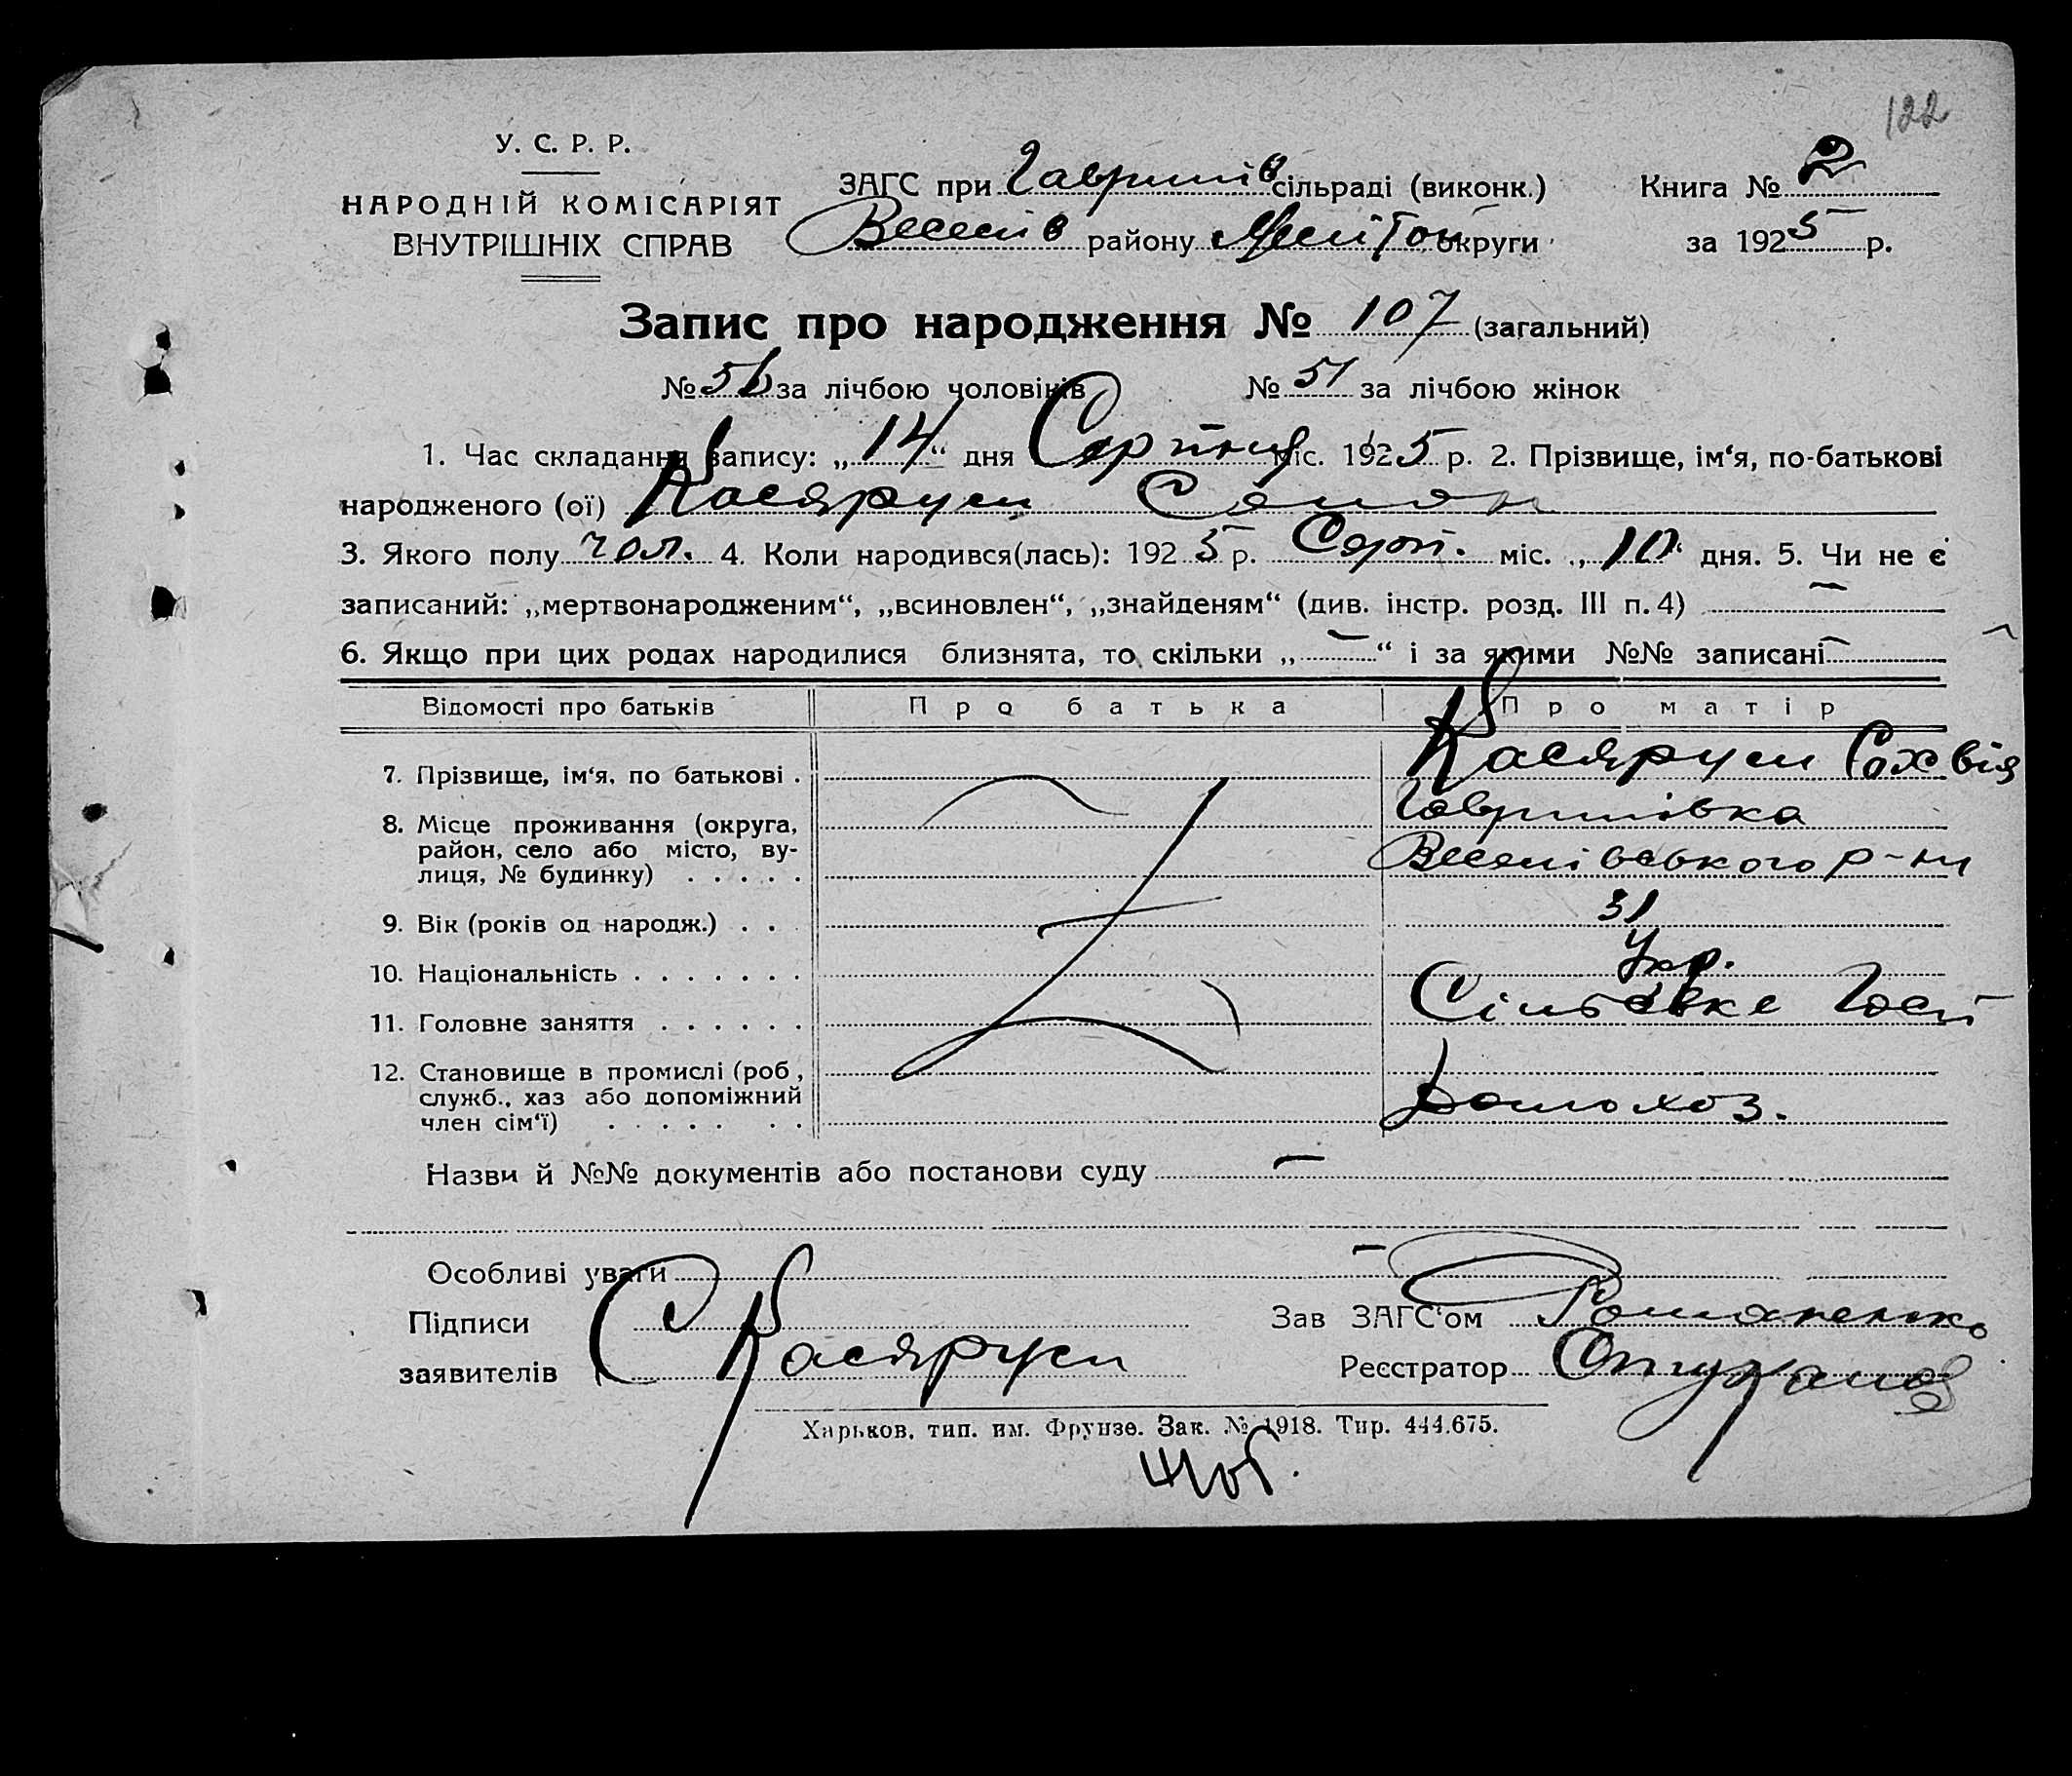 122
У. С. Р. Р.
НАРОДНІЙ КОМІСАРІЯТ
ВНУТРІШНІХ СПРАВ
ЗАГС при Гаврилів сільраді (виконк.)
Весели в району Меліт округи
Книга № 2
за 1925 р.
Запис про народження № 107 (загальний)
№ 56 за лічбою чоловіків № 51 за лічбою жінок
1. Час складання запису: „14“ дня Серпня міс. 1925 р. 2. Прізвище, ім‘я, по-батькові
народженого (ої) Касярум Семен
3. Якого полу чол. 4. Коли народився(лась): 1925 р. Серп. міс. „10“ дня. 5. Чи не є
записаний: „мертвонародженим“, „всиновлен“, „знайденям“ (див. інстр. розд. III п. 4) —
6. Якщо при цих родах народилися близнята, то скільки „—“ і за якими №№ записані —
Відомості про батьків Про батька Про матір
7. Прізвище, ім‘я, по батькові . Касярум Сохвія
8. Місце проживання (округа,
район, село або місто, ву-
лиця, № будинку) . . . . .
Гаврилівка
Веселівського р-ну
9. Вік (років од народж.) . . 31
10. Національність . . . . . . . Укр.
11. Головне заняття . . . . . . Сільське Госп
12. Становище в промислі (роб,
служб., хаз або допоміжний
член сім‘ї) . . . . . . .
Домохоз.
Назви й №№ документів або постанови суду —
Особливі уваги —
Підписи
заявителів С Касярум
Зав ЗАГС‘ом Романенко
Реєстратор
Харьков, тип. им. Фрунзе. Зак. № 1918. Тир. 444.675.